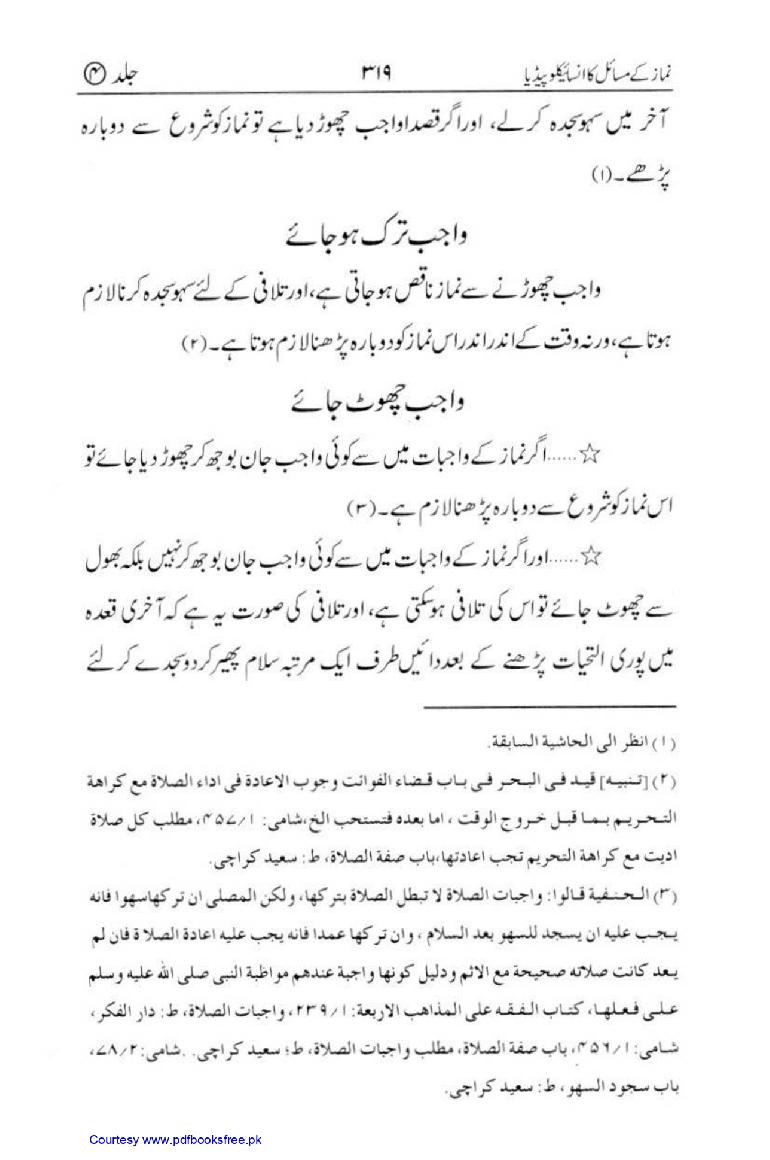 نماز کے مسائل کا انسائیکلوپیڈیا ۳۱۹ جلد ④
آخر میں سہو سجدہ کر لے، اور اگر قصدا واجب چھوڑ دیا ہے تو نماز کو شروع سے دوبارہ
پڑھے۔(۱)
واجب ترک ہو جائے
واجب چھوڑنے سے نماز ناقص ہو جاتی ہے، اور تلافی کے لئے سہو سجدہ کرنا لازم
ہوتا ہے، ورنہ وقت کے اندر اندر اس نماز کو دوبارہ پڑھنا لازم ہوتا ہے۔(۲)
واجب چھوٹ جائے
☆......اگر نماز کے واجبات میں سے کوئی واجب جان بوجھ کر چھوڑ دیا جائے تو
اس نماز کو شروع سے دوبارہ پڑھنا لازم ہے۔(۳)
☆......اور اگر نماز کے واجبات میں سے کوئی واجب جان بوجھ کر نہیں بلکہ بھول
سے چھوٹ جائے تو اس کی تلافی ہو سکتی ہے، اور تلافی کی صورت یہ ہے کہ آخری قعدہ
میں پوری التحیات پڑھنے کے بعد دائیں طرف ایک مرتبہ سلام پھیر کر دو سجدے کر لئے
(۱) انظر الی الحاشیة السابقة.
(۲) [تنبیه] قید فی البحر فی باب قضاء الفوائت وجوب الاعادة فی اداء الصلاة مع کراهة
التحریم بما قبل خروج الوقت ، اما بعده فتستحب الخ،شامی: ۱/۴۵۷، مطلب کل صلاة
ادیت مع کراهة التحریم تجب اعادتها،باب صفة الصلاة، ط: سعید کراچی.
(۳) الحنفیة قالوا: واجبات الصلاة لا تبطل الصلاة بترکها، ولکن المصلی ان ترکها سهوا فانه
یجب علیه ان یسجد للسهو بعد السلام ، وان ترکها عمدا فانه یجب علیه اعادة الصلاة فان لم
یعد کانت صلاته صحیحة مع الاثم ودلیل کونها واجبة عندهم مواظبة النبی صلی الله علیه وسلم
علی فعلها، کتاب الفقه علی المذاهب الاربعة: ۱/۲۳۹، واجبات الصلاة، ط: دار الفکر،
شامی: ۱/۴۵۶، باب صفة الصلاة، مطلب واجبات الصلاة، ط؛ سعید کراچی. .شامی: ۲/۷۸،
باب سجود السهو، ط: سعید کراچی.
Courtesy www.pdfbooksfree.pk